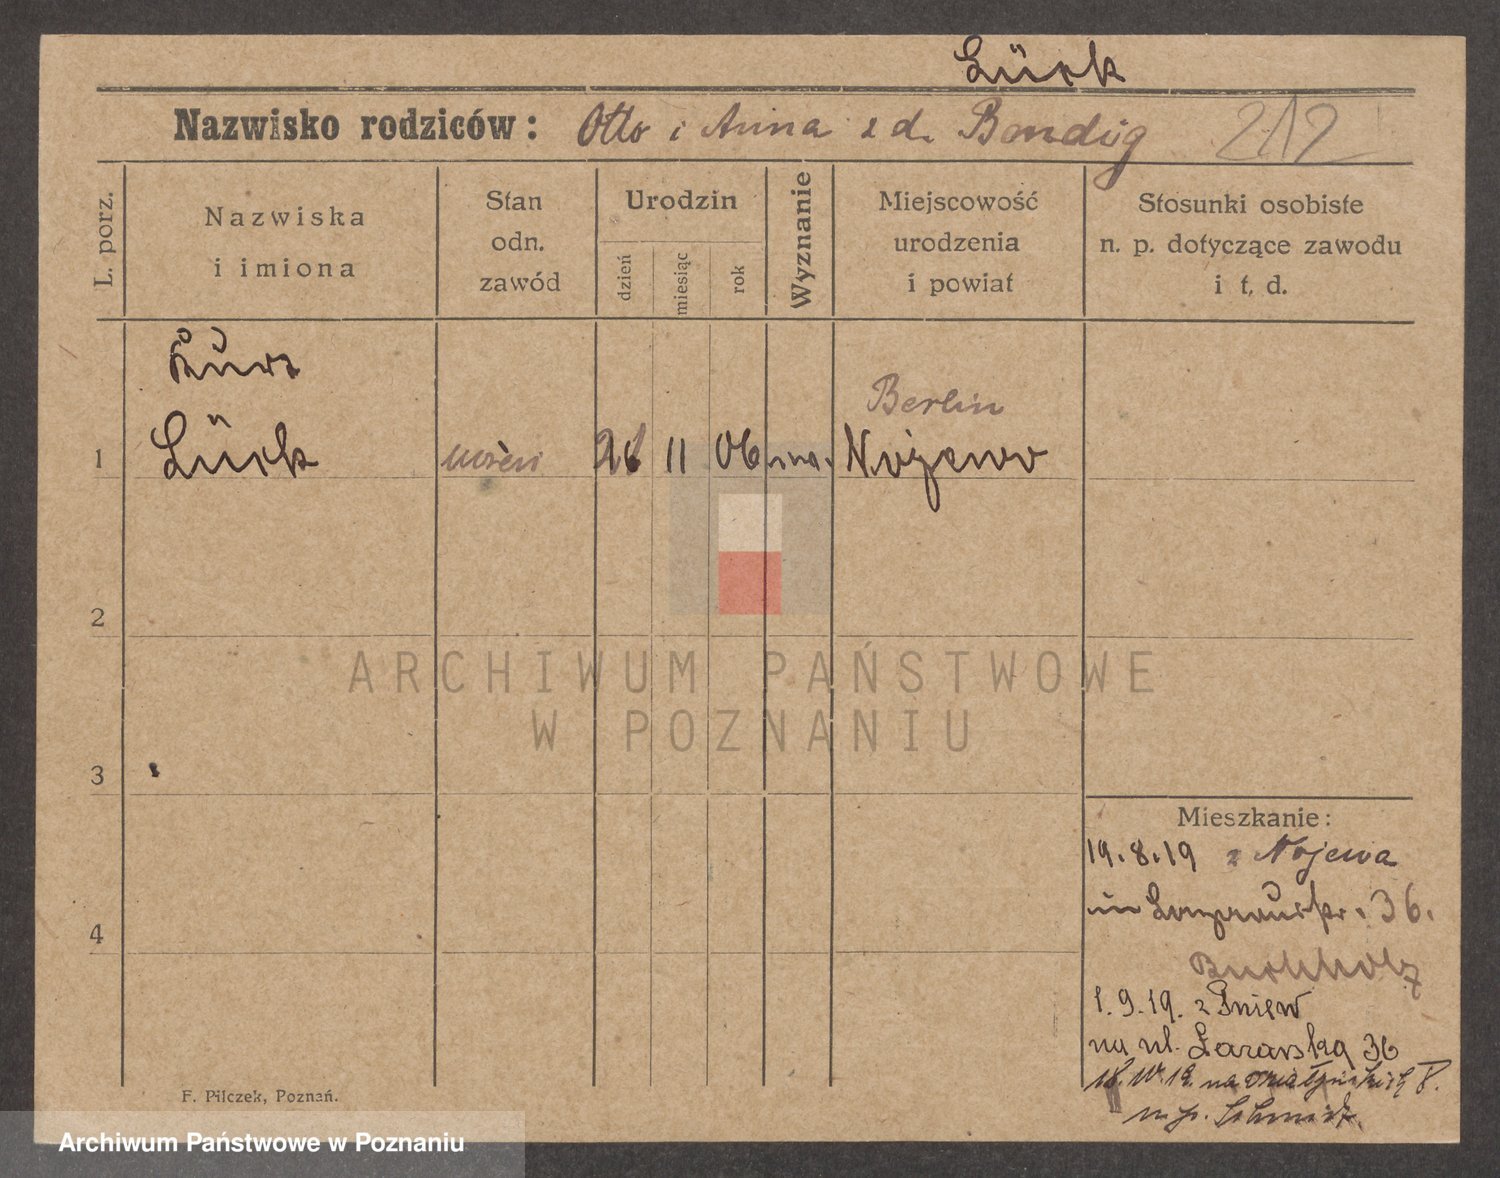 Lück
Nazwisko rodziców: Otto i Anna z d. Bandug
212
L. porz.
Nazwiska
i imiona
Stan
odn.
zawód
Urodzin
dzień
miesiąc
rok
Wyznanie
Miejscowość
urodzenia
i powiat
Stosunki osobiste
n. p. dotyczące zawodu
i t. d.
Kurt
Berlin
1 Lück uczeń 11 06 Nojewo
2
ARCHIWUM PAŃSTWOWE
W POZNANIU
3
Mieszkanie:
19.8.19 z Nojewa
36.
4
Buchholz
1.9.19. z Pniew
na ul. Łazarska 36
na Działyńskich 8.
m p. Schmidt.
F. Pilczek, Poznań.
Archiwum Państwowe w Poznaniu